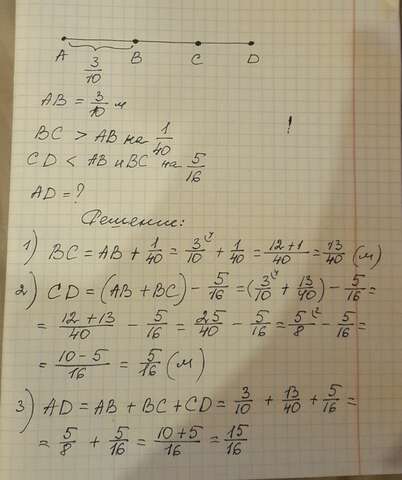 A B C D
3/10
AB = 3/10 м
BC > AB на 1/40
CD < AB и BC на 5/16
AD = ?
Решение:
1) BC = AB + 1/40 = 3/10 + 1/40 = 12+1/40 = 13/40 (м)
2) CD = (AB + BC) - 5/16 = (3/10 + 13/40) - 5/16 =
= 12+13/40 - 5/16 = 25/40 - 5/16 = 5/8 - 5/16 =
= 10-5/16 = 5/16 (м)
3) AD = AB + BC + CD = 3/10 + 13/40 + 5/16 =
= 5/8 + 5/16 = 10+5/16 = 15/16